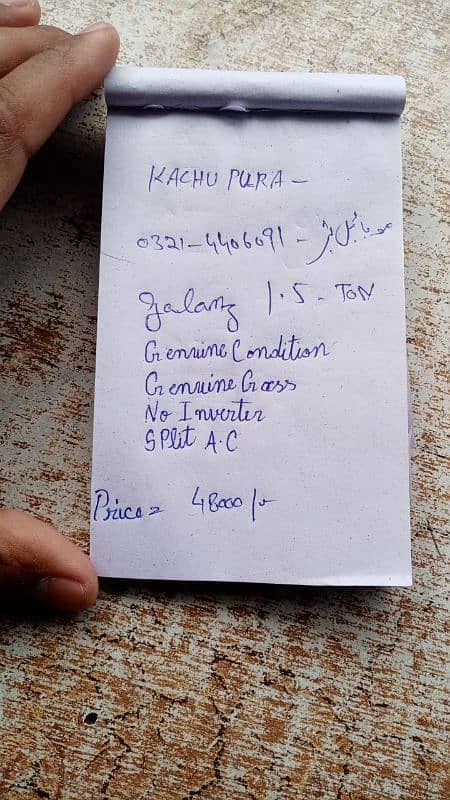 KACHU PURA -
0321-4406091 - موبائل نمبر
Galanz 1.5. TON
Genuine Condition
Genuine Gass
No Inverter
SPlit A.C
Price = 48000/-